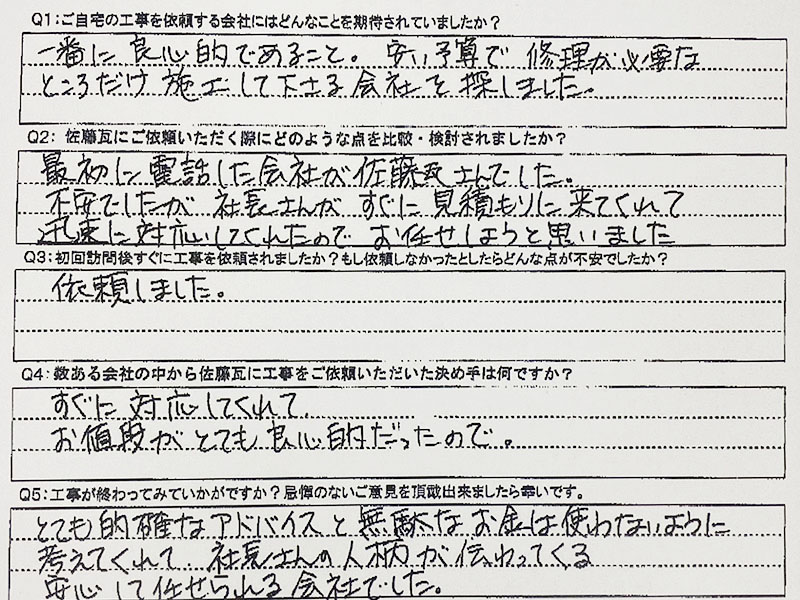 Q1:ご自宅の工事を依頼する会社にはどんなことを期待されていましたか?
一番に良心的であること。安い予算で修理が必要な
ところだけ施工して下さる会社を探しました。
Q2: 佐藤瓦にご依頼いただく際にどのような点を比較・検討されましたか?
最初に電話した会社が佐藤瓦さんでした。
不安でしたが社長さんがすぐに見積もりに来てくれて
迅速に対応してくれたのでお任せしようと思いました
Q3:初回訪問後すぐに工事を依頼されましたか?もし依頼しなかったとしたらどんな点が不安でしたか?
依頼しました。
Q4:数ある会社の中から佐藤瓦に工事をご依頼いただいた決め手は何ですか?
すぐに対応してくれて、
お値段がとても良心的だったので。
Q5:工事が終わってみていかがですか?忌憚のないご意見を頂戴出来ましたら幸いです。
とても的確なアドバイスと無駄なお金は使わないように
考えてくれて、社長さんの人柄が伝わってくる
安心して任せられる会社でした。